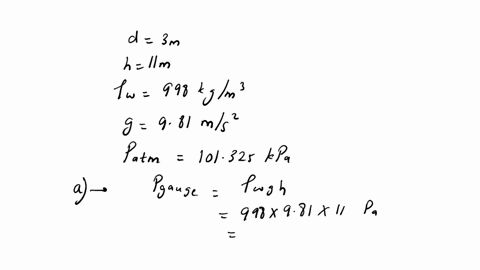 d = 3m
h = 11m
ρw = 998 kg/m³
g = 9.81 m/s²
Patm = 101.325 kPa
a) → Pgauge = ρwgh
= 998 × 9.81 × 11 Pa
=